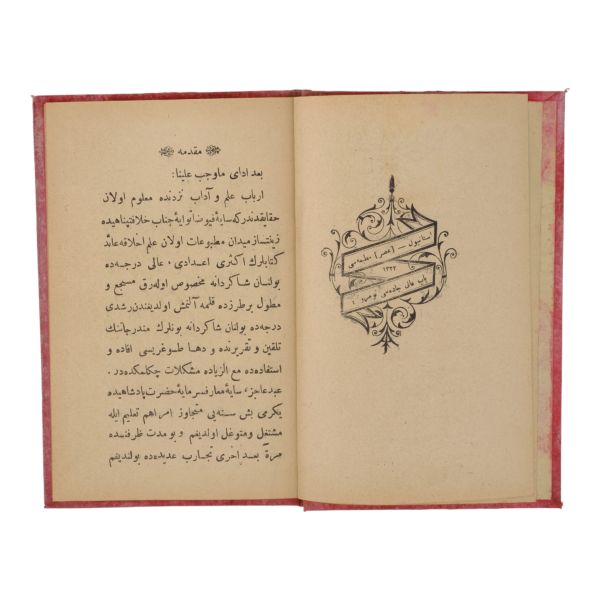 استانبول — [عصر] مطبعه‌سی
١٣٢٢
باب عالی جاده‌سی نومرو :
مقدمه
بعد ادای ماوجب علینا :
ارباب علم و آداب نزدنده معلوم اولان
حقایقدندر که سایهٔ فیوضاتوایهٔ جناب خلافتپناهیده
زینتساز میدان مطبوعات اولان علم اخلاقه عائد
کتابلرك اکثری اعدادی ، عالی درجه‌ده
بولنان شاکردانه مخصوص اوله‌رق مسجع و
مطول بر طرزده قلمه آلنمش اولدیغندن رشدی
درجه‌ده بولنان شاکردانه بونلرك مندرجاتنك
تلقین و تقریرنده و دها طوغریسی افاده و
استفاده‌ده مع الزیاده مشکلات چکلمکده‌در .
عبد عاجز ، سایهٔ معارفسرمایهٔ حضرت پادشاهیده
یکرمی بش سنه‌یی متجاوز امر اهم تعلیم ایله
مشتغل و متوغل اولدیغم و بو مدت ظرفنده
مرةً بعد اخری تجارب عدیده‌ده بولندیغم